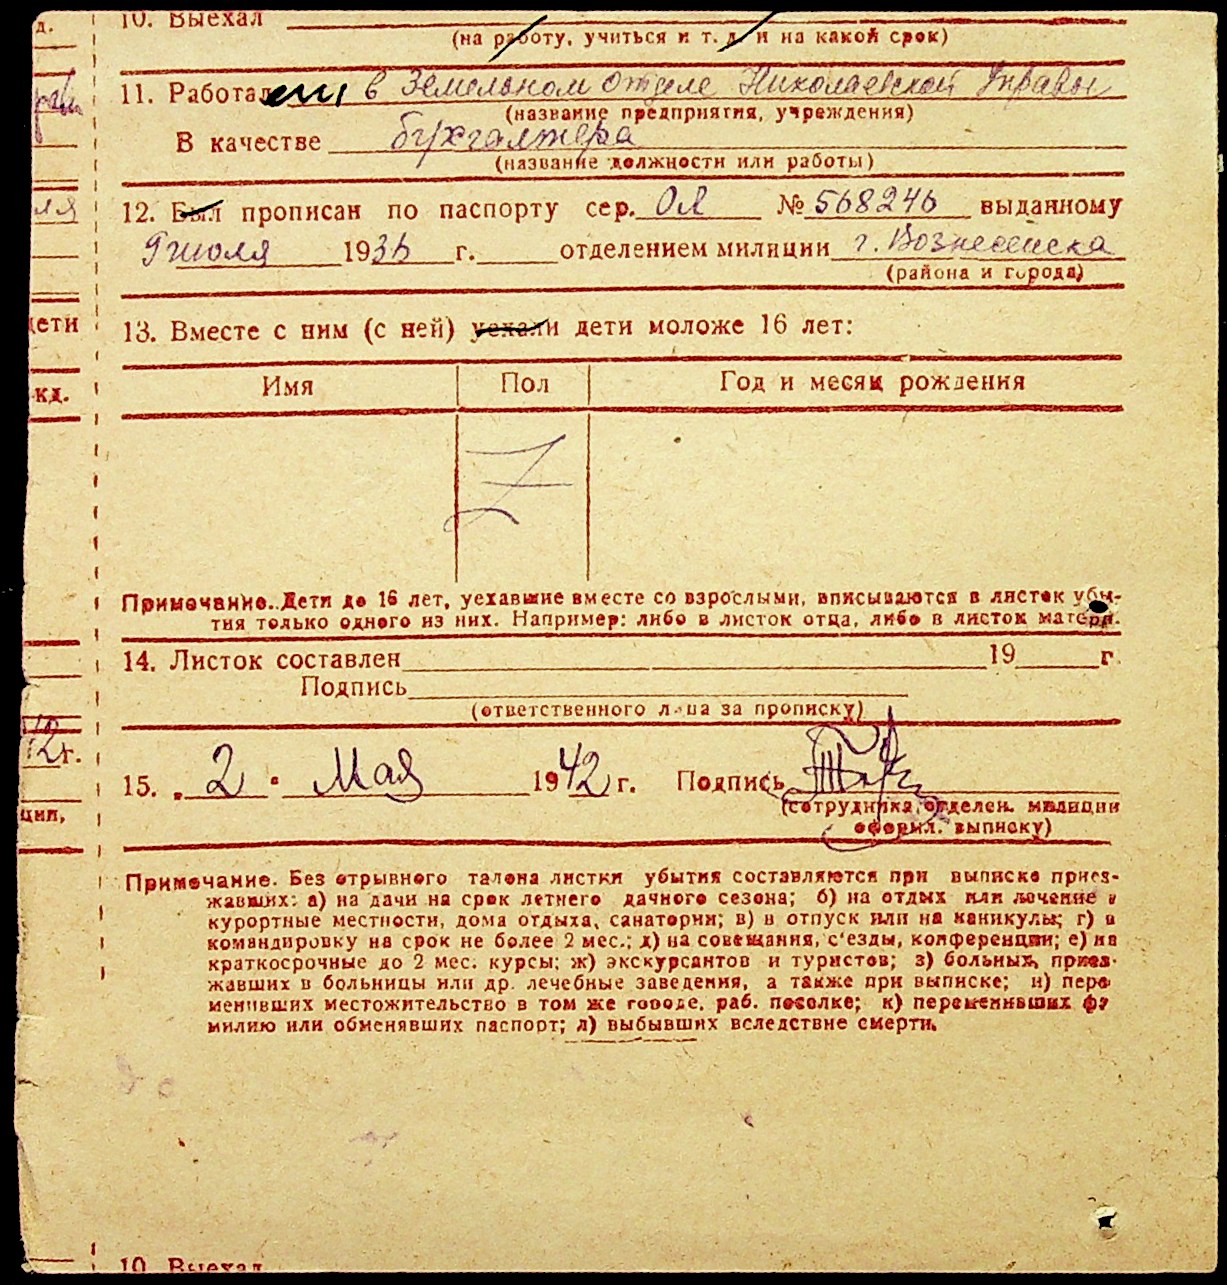 10. Выехал
(на работу, учиться и т. д. и на какой срок)
11. Работает в Земельном отделе Николаевской Управы
(название предприятия, учреждения)
В качестве бухгалтера
(название должности или работы)
12. Был прописан по паспорту сер. ОЛ № 568246 выданному
9 июля 1936 г. отделением милиции г. Вознесенска
(района и города)
13. Вместе с ним (с ней) уехали дети моложе 16 лет:
Имя Пол Год и месяц рождения
Примечание. Дети до 16 лет, уехавшие вместе со взрослыми, вписываются в листок убы-
тия только одного из них. Например: либо в листок отца, либо в листок матери.
14. Листок составлен 19 г.
Подпись
(ответственного лица за прописку)
15. „ 2 " Мая 1942 г. Подпись
(сотрудника отделен. милиции
оформл. выписку)
Примечание. Без отрывного талона листки убытия составляются при выписке приез-
жавших: а) на дачи на срок летнего дачного сезона; б) на отдых или лечение в
курортные местности, дома отдыха, санатории; в) в отпуск или на каникулы; г) в
командировку на срок не более 2 мес.; д) на совещания, с'езды, конференции; е) на
краткосрочные до 2 мес. курсы; ж) экскурсантов и туристов; з) больных, приез-
жавших в больницы или др. лечебные заведения, а также при выписке; и) пере
менивших местожительство в том же городе, раб. поселке; к) переменивших фа
милию или обменявших паспорт; л) выбывших вследствие смерти.
д.
ля
дети
кд.
42 г.
ции,
10. Выехал